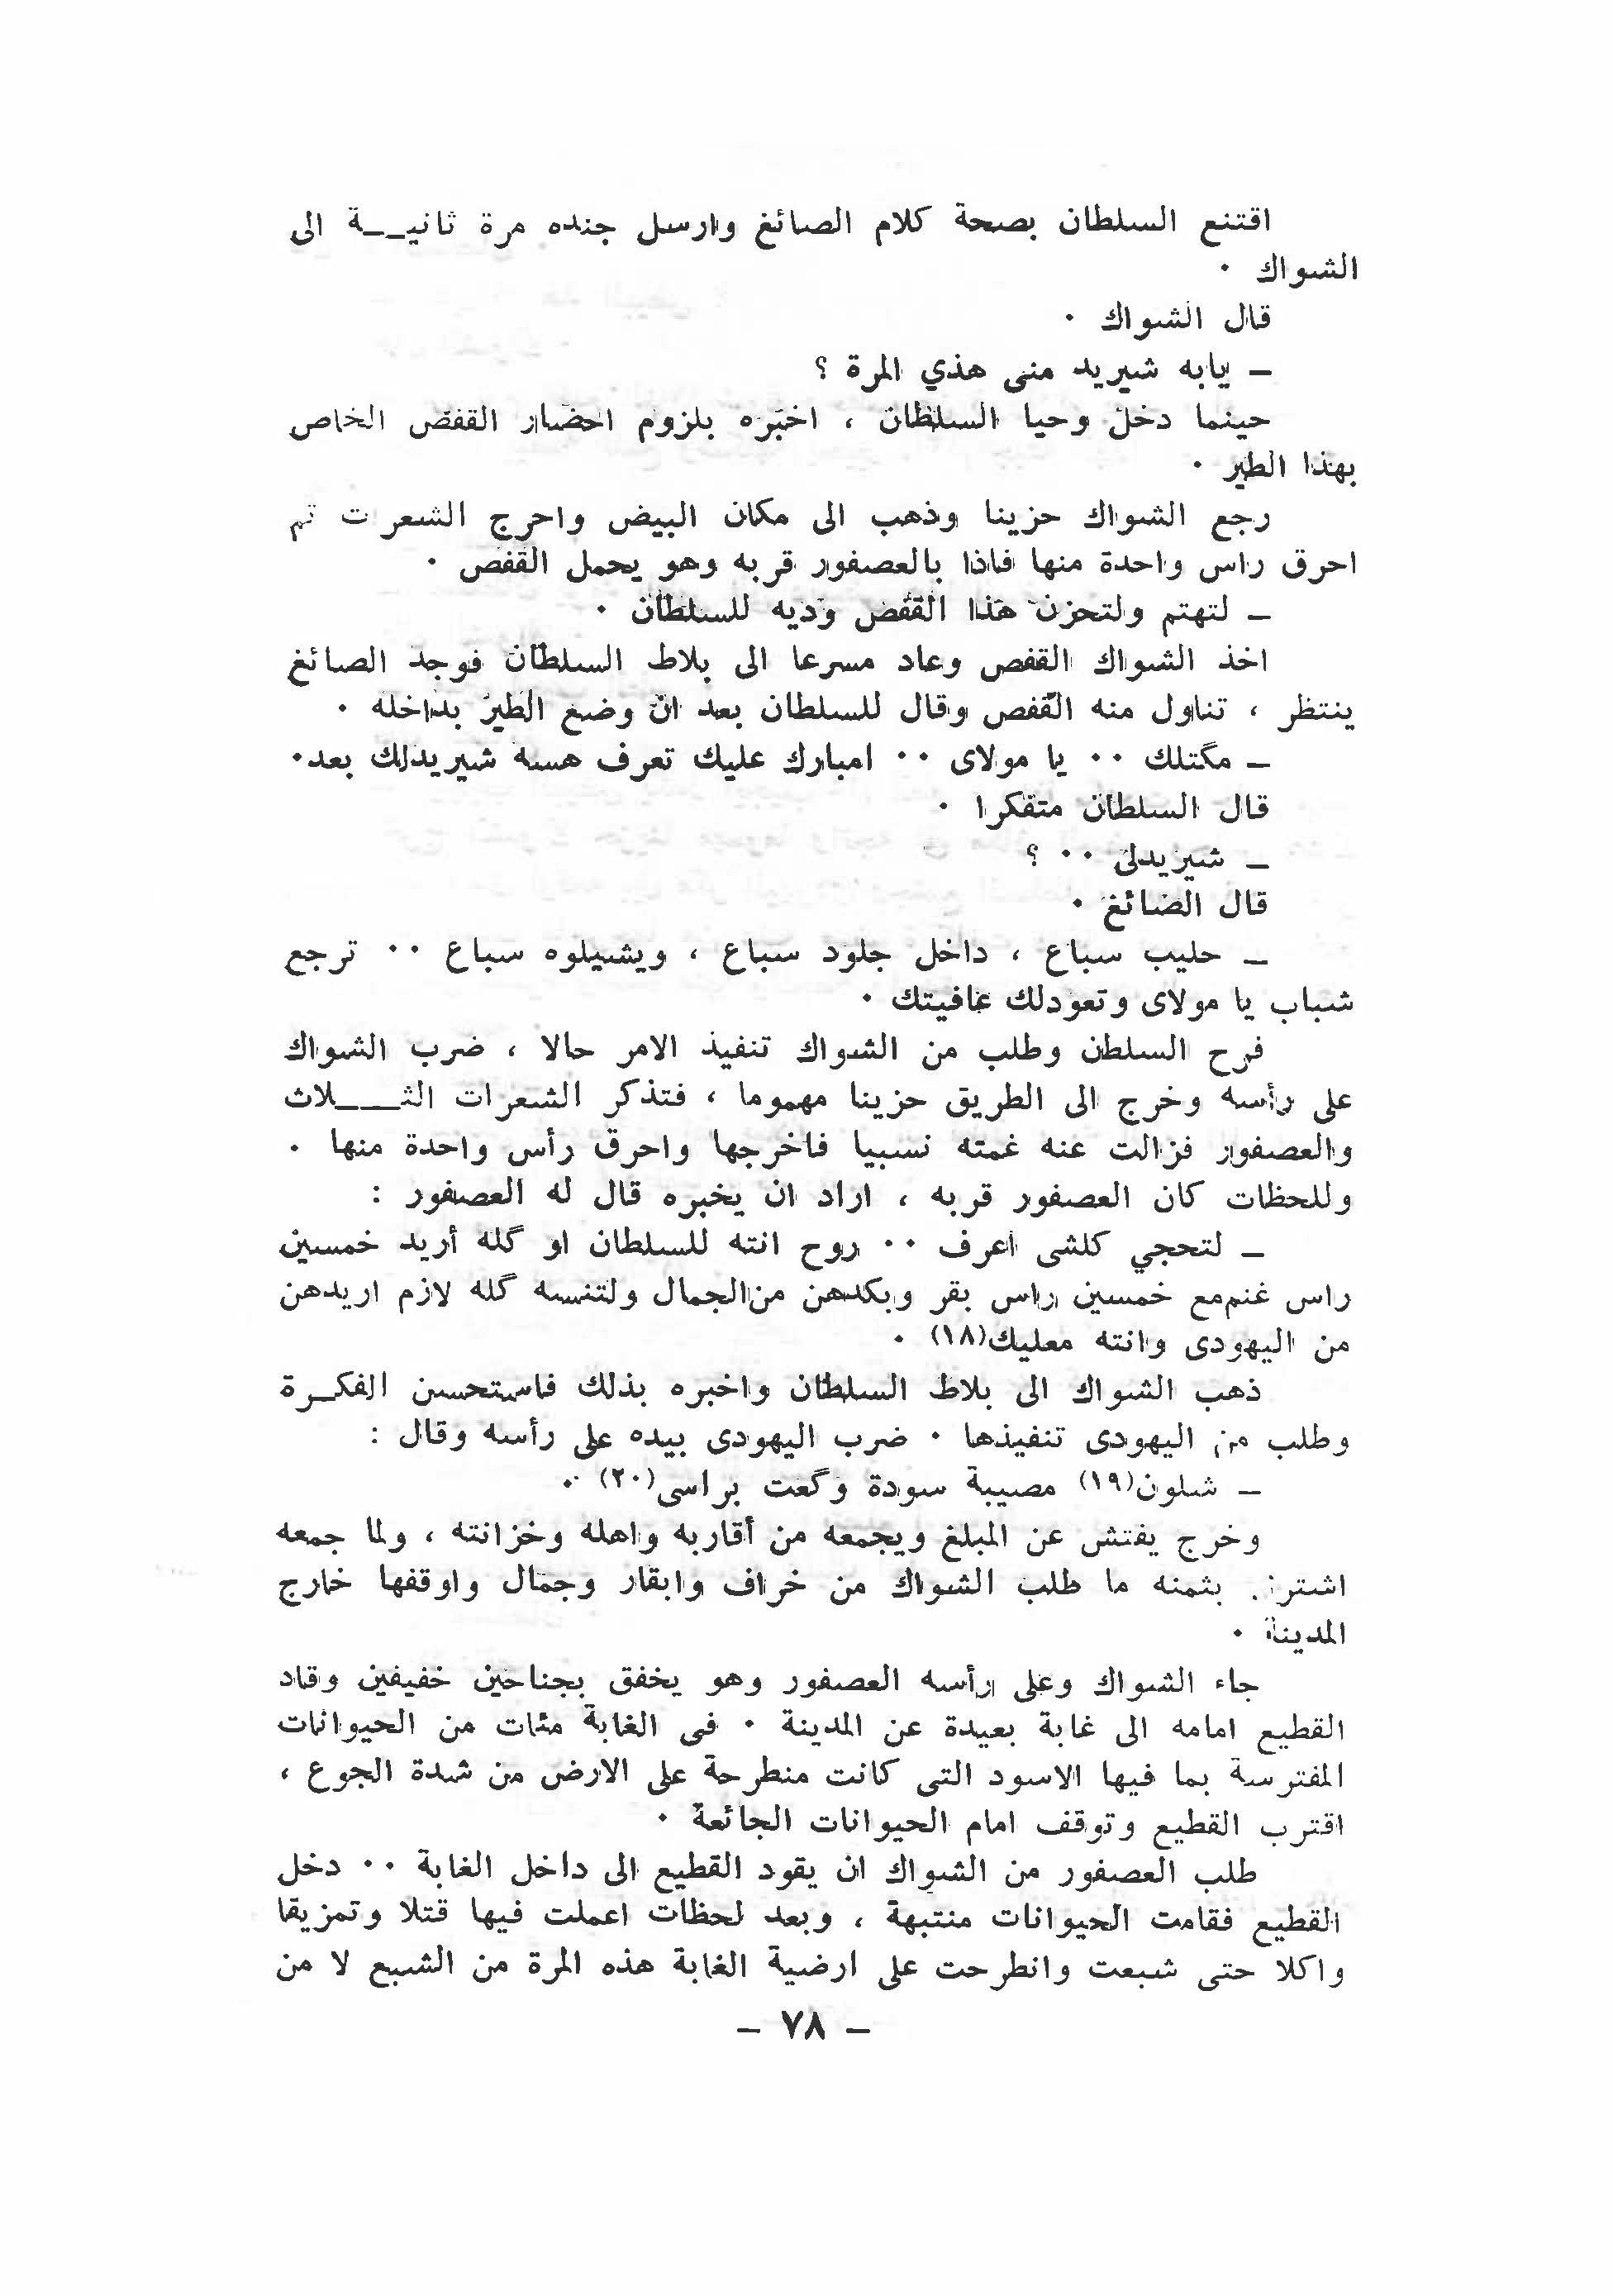 اقتنع السلطان بصحة كلام الصائغ وارسل جنده مرة ثانيـــة الى
الشواك .
قال الشواك .
ـ يابه شيريد منى هذي المرة ؟
حينما دخل وحيا السلطان ، اخبره بلزوم احضار القفص الخاص
بهذا الطير .
رجع الشواك حزينا وذهب الى مكان البيض واخرج الشعرات ثم
احرق راس واحدة منها فاذا بالعصفور قربه وهو يحمل القفص .
ـ لتهتم ولتحزن هذا القفص وديه للسلطان .
اخذ الشواك القفص وعاد مسرعا الى بلاط السلطان فوجد الصائغ
ينتظر ، تناول منه القفص وقال للسلطان بعد ان وضع الطير بداخله .
ـ مگتلك .. يا مولاى .. امبارك عليك تعرف هسه شيريدلك بعد.
قال السلطان متفكرا .
ـ شيريدلى .. ؟
قال الصائغ .
ـ حليب سباع ، داخل جلود سباع ، ويشيلوه سباع .. ترجع
شباب يا مولاى وتعودلك عافيتك .
فرح السلطن وطلب من الشواك تنفيذ الامر حالا ، ضرب الشواك
على رأسه وخرج الى الطريق حزينا مهموما ، فتذكر الشعرات الثـــلاث
والعصفور فزالت عنه غمته نسبيا فاخرجها واحرق رأس واحدة منها .
وللحظات كان العصفور قربه ، اراد ان يخبره قال له العصفور :
ـ لتحجي كلشى اعرف .. روح انته للسلطان او گله أريد خمسين
راس غنم مع خمسين راس بقر وبكدهن من الجمال ولتنسه گله لازم اريدهن
من اليهودى وانته معليك(١٨) .
ذهب الشواك الى بلاط السلطان واخبره بذلك فاستحسن الفكـرة
وطلب من اليهودى تنفيذها . ضرب اليهودى بيده على رأسه وقال :
ـ شلون(١٩) مصيبة سودة وگعت براسى(٢٠) .
وخرج يفتش عن المبلغ ويجمعه من أقاربه واهله وخزانته ، ولما جمعه
بثمنه ما طلب الشواك من خراف وابقار وجمال واوقفها خارج
المدينة .
جاء الشواك وعلى رأسه العصفور وهو يخفق بجناحين خفيفين وقاد
القطيع امامه الى غابة بعيدة عن المدينة . فى الغابة مئات من الحيوانات
المفترسة بما فيها الاسود التى كانت منطرحة على الارض من شدة الجوع ،
اقترب القطيع وتوقف امام الحيوانات الجائعة .
طلب العصفور من الشواك ان يقود القطيع الى داخل الغابة .. دخل
القطيع فقامت الحيوانات منتبهة ، وبعد لحظات اعملت فيها قتلا وتمزيقا
واكلا حتى شبعت وانطرحت على ارضية الغابة هذه المرة من الشبع لا من
ـ ٧٨ ـ